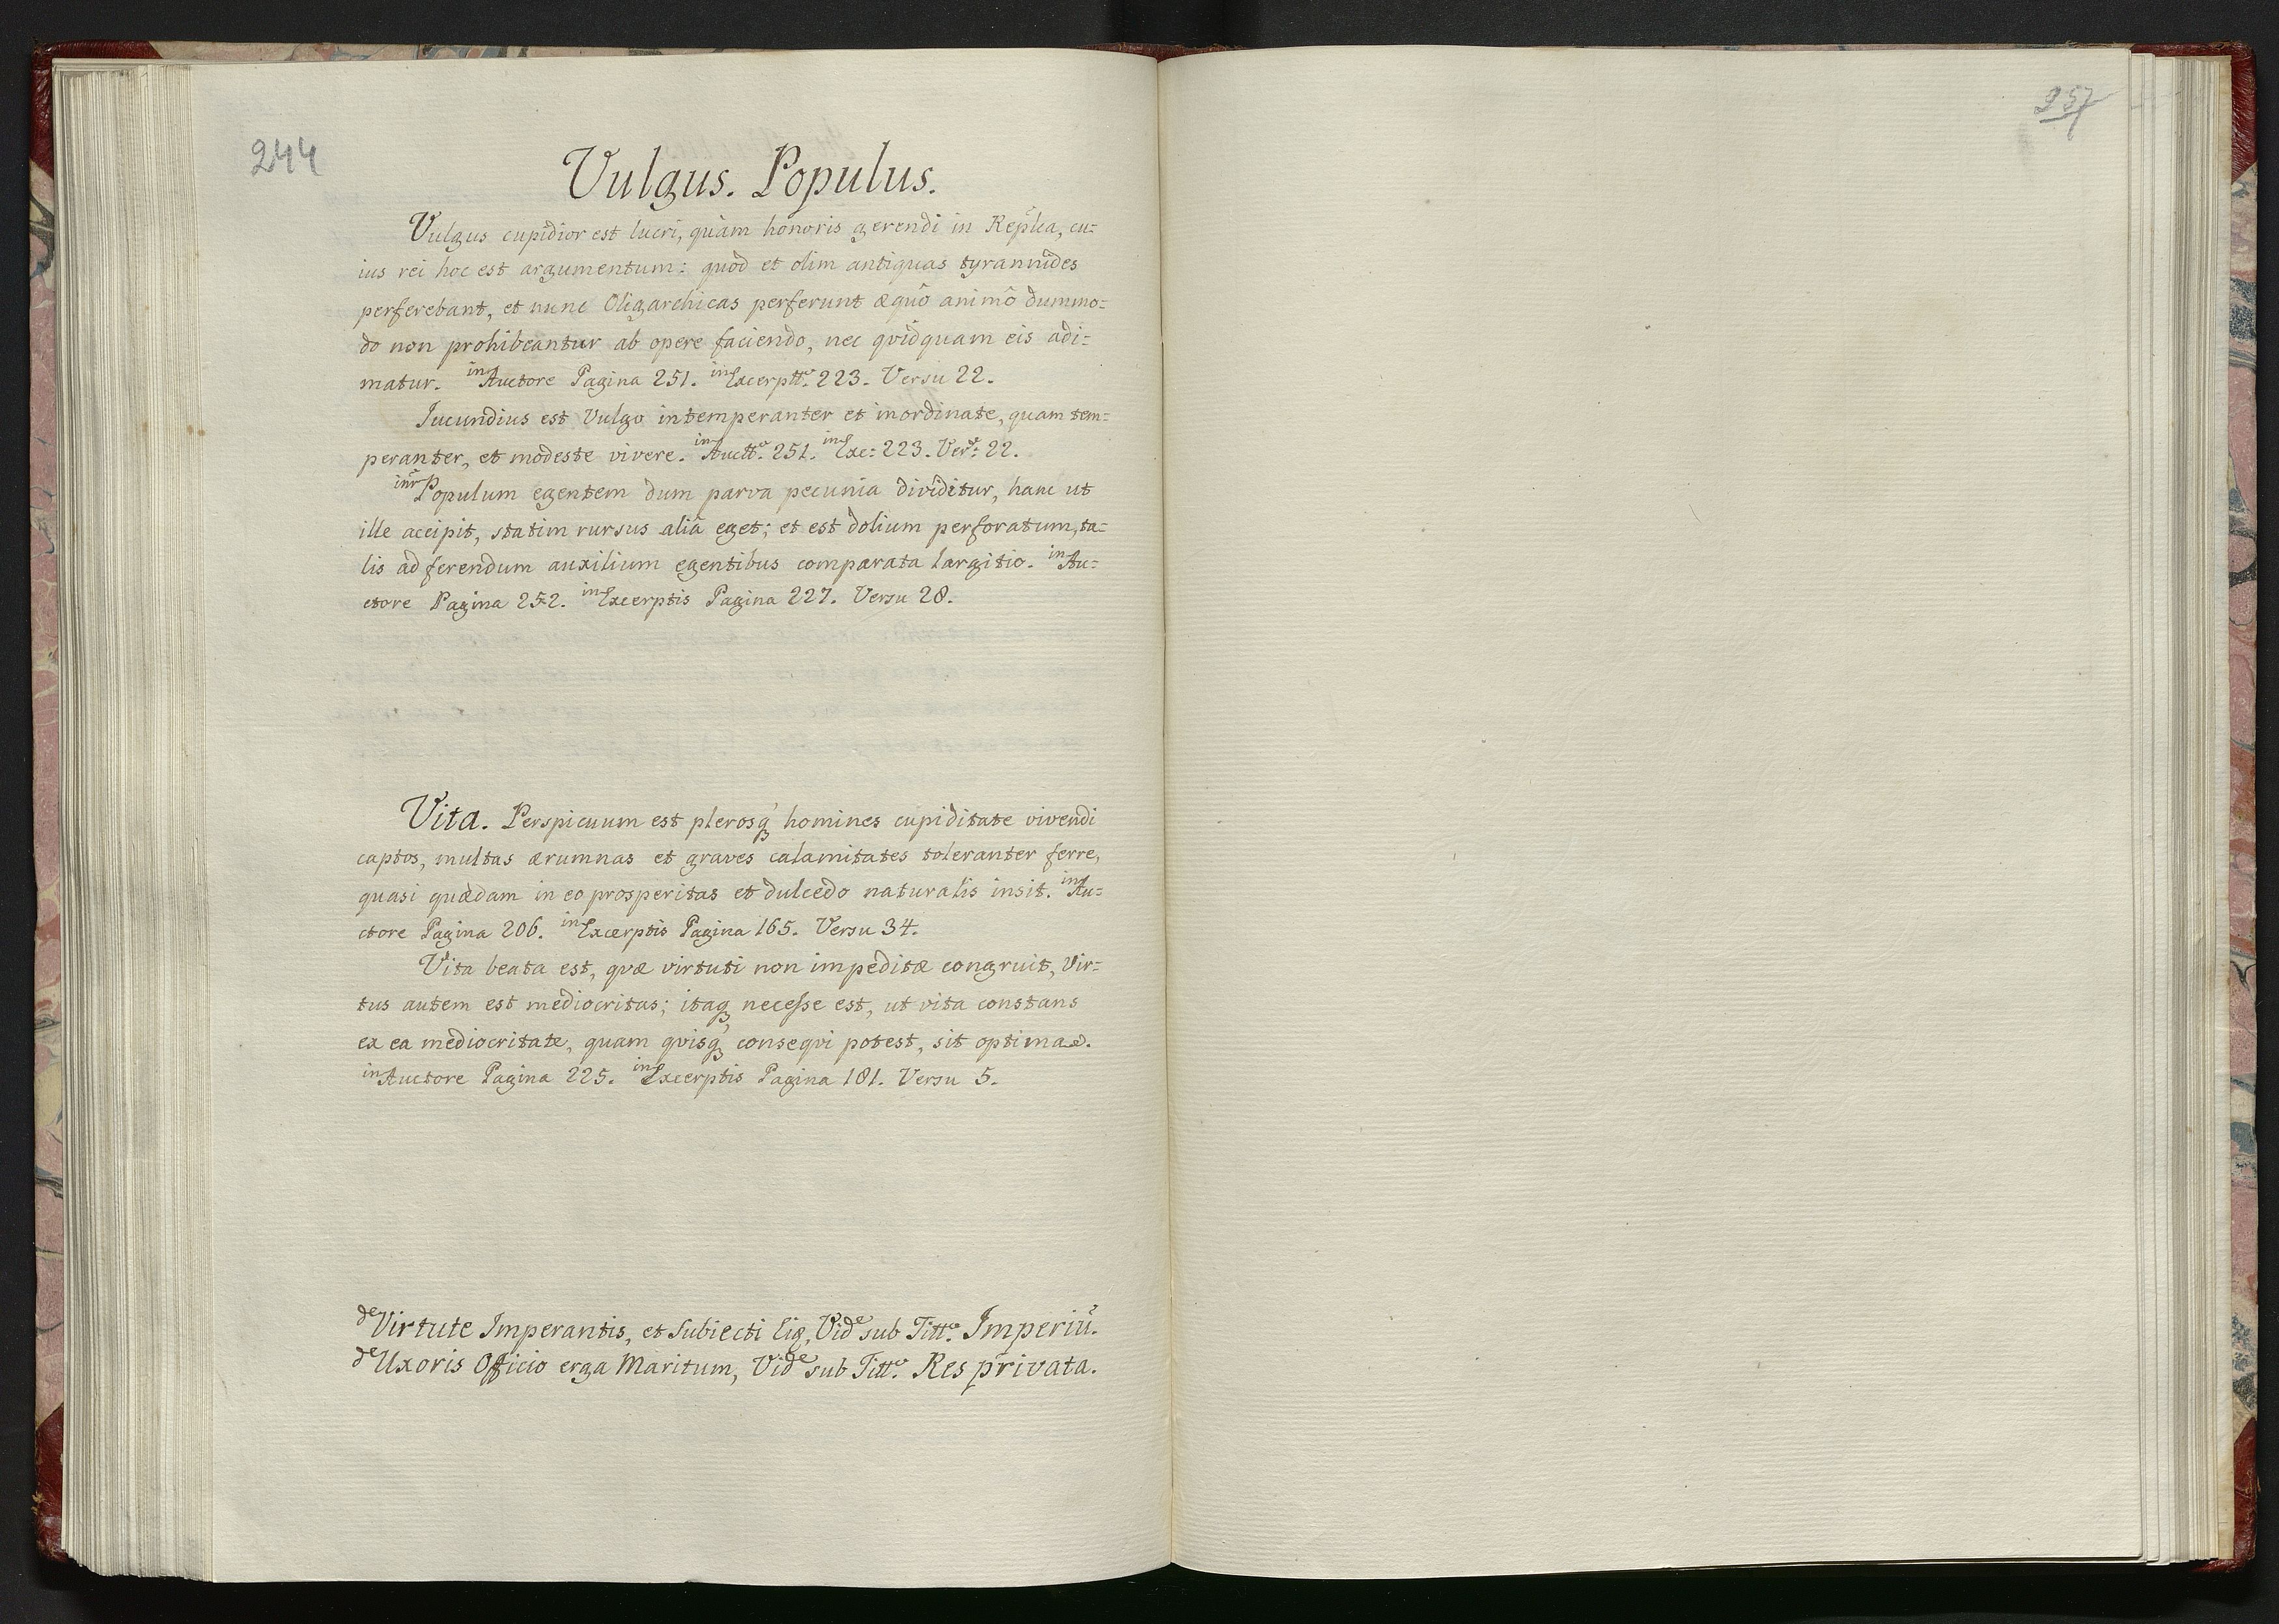 244
Vulgus. Populus.
Vulgus cupidior est lucri, quàm honoris gerendi in Repl̃ca, cu=
ius rei hoc est argumentum: quod et olim antiquas tyrannides
perferebant, et nunc Oligarchicas perferunt æquô animô dummo=
do non prohibeantur ab opere faciendo, nec qvidquam eis adi=
matur. in Auctore Pagina 251. in Excerptt. 223. Versu 22.
Jucundius est Vulgo intemperanter et inordinate, quam tem=
peranter, et modeste vivere. in Auctt. 251. in Exc: 223. Ver: 22.
Populum egentem dum parva pecunia dividitur, hanc ut
ille accipit, statim rursus aliâ eget; et est dolium perforatum, ta=
lis ad ferendum auxilium egentibus comparata largitio. in Au=
ctore Pagina 252. in Excerptis Pagina 227. Versu 28.
Vita. Perspicuum est plerosq́ꝫ homines cupiditate vivendi
captos, multas ærumnas et graves calamitates toleranter ferre,
quasi quædam in eo prosperitas et dulcedo naturalis insit. in Au=
ctore Pagina 206. in Excerptis Pagina 165. Versu 34.
Vita beata est, qvæ virtuti non impeditæ congruit, Vir=
tus autem est mediocritas; itaqꝫ necesse est, ut vita constans
ex ea mediocritate, quam qvisq́ꝫ conseqvi potest, sit optima.
in Auctore Pagina 225. in Excerptis Pagina 181. Versu 5.
de Virtute Imperantis, et Subiecti Vide sub Titt. Imperiũ.
de Uxoris Officio erga Maritum, Vide sub Titt. Res privata.
257